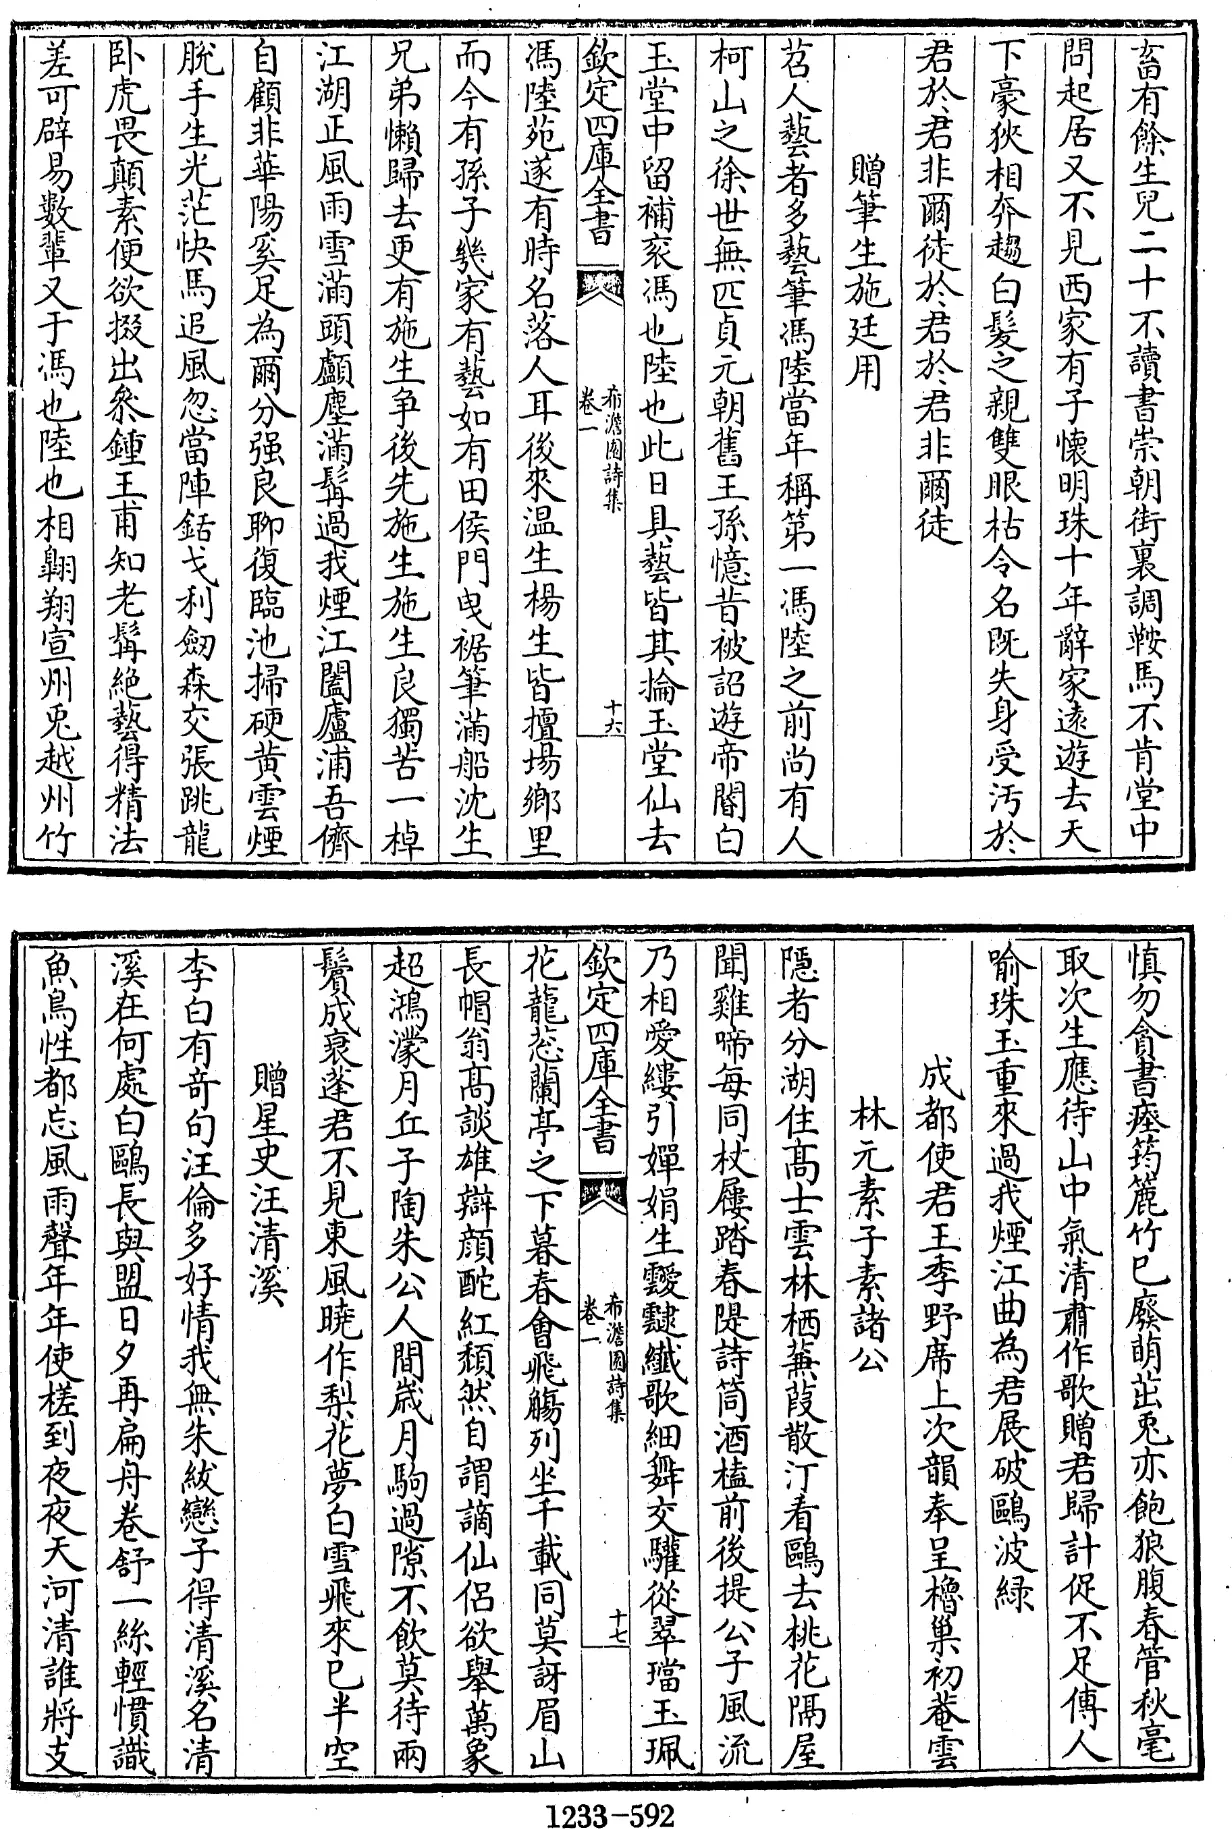 畜有餘生兒二十不讀書崇朝街裏調鞍馬不肯堂中
問起居又不見西家有子懷明珠十年辭家遠遊去天
下豪狹相奔趨白髮之親雙眼枯令名既失身受汚於
君於君非爾徒於君於君非爾徒
贈筆生施廷用
苕人藝者多藝筆馮陸當年稱第一馮陸之前尚有人
柯山之徐世無匹貞元朝舊王孫憶昔被詔遊帝閽白
玉堂中留補衮馮也陸也此日具藝皆其掄玉堂仙去
欽定四庫全書
希澹園詩集
卷一
十六
馮陸苑遂有時名落人耳後來温生楊生皆擅場鄉里
而今有孫子幾家有藝如有田侯門曳裾筆滿船沈生
兄弟懶歸去更有施生争後先施生施生良獨苦一棹
江湖正風雨雪滿頭顱塵滿髯過我煙江闔廬浦吾儕
自顧非華陽奚足為爾分强良聊復臨池掃硬黄雲煙
脫手生光茫快馬追風忽當陣銛戈利劒森交張跳龍
卧虎畏顛素便欲掇出叅鍾王甫知老髯絶藝得精法
差可辟易數輩又于馮也陸也相翺翔宣州兎越州竹
慎勿貪書瘞筠簏竹已廢萌茁兎亦飽狼腹春管秋毫
取次生應待山中氣清肅作歌贈君歸計促不足傳人
喻珠玉重來過我煙江曲為君展破鷗波緑
成都使君王季野席上次韻奉呈櫓巢初菴雲
林元素子素諸公
隱者分湖住高士雲林栖蒹葭散汀看鷗去桃花隔屋
聞雞啼每同杖屨踏春隄詩筒酒榼前後提公子風流
乃相愛縷引嬋娟生靉靆纎歌細舞交驩從翠璫玉珮
欽定四庫全書
希澹園詩集
卷一
十七
花龍蕊蘭亭之下暮春會飛觴列坐千載同莫訝眉山
長帽翁高談雄辯顔酡紅頽然自謂謫仙侣欲舉萬象
超鴻濛月丘子陶朱公人間歲月駒過隙不飲莫待兩
鬢成衰蓬君不見東風曉作梨花夢白雪飛來已半空
贈星史汪清溪
李白有奇句汪倫多好情我無朱紱戀子得清溪名清
溪在何處白鷗長與盟日夕再扁舟卷舒一絲輕慣識
魚鳥性都忘風雨聲年年使槎到夜夜天河清誰將支
1233-592